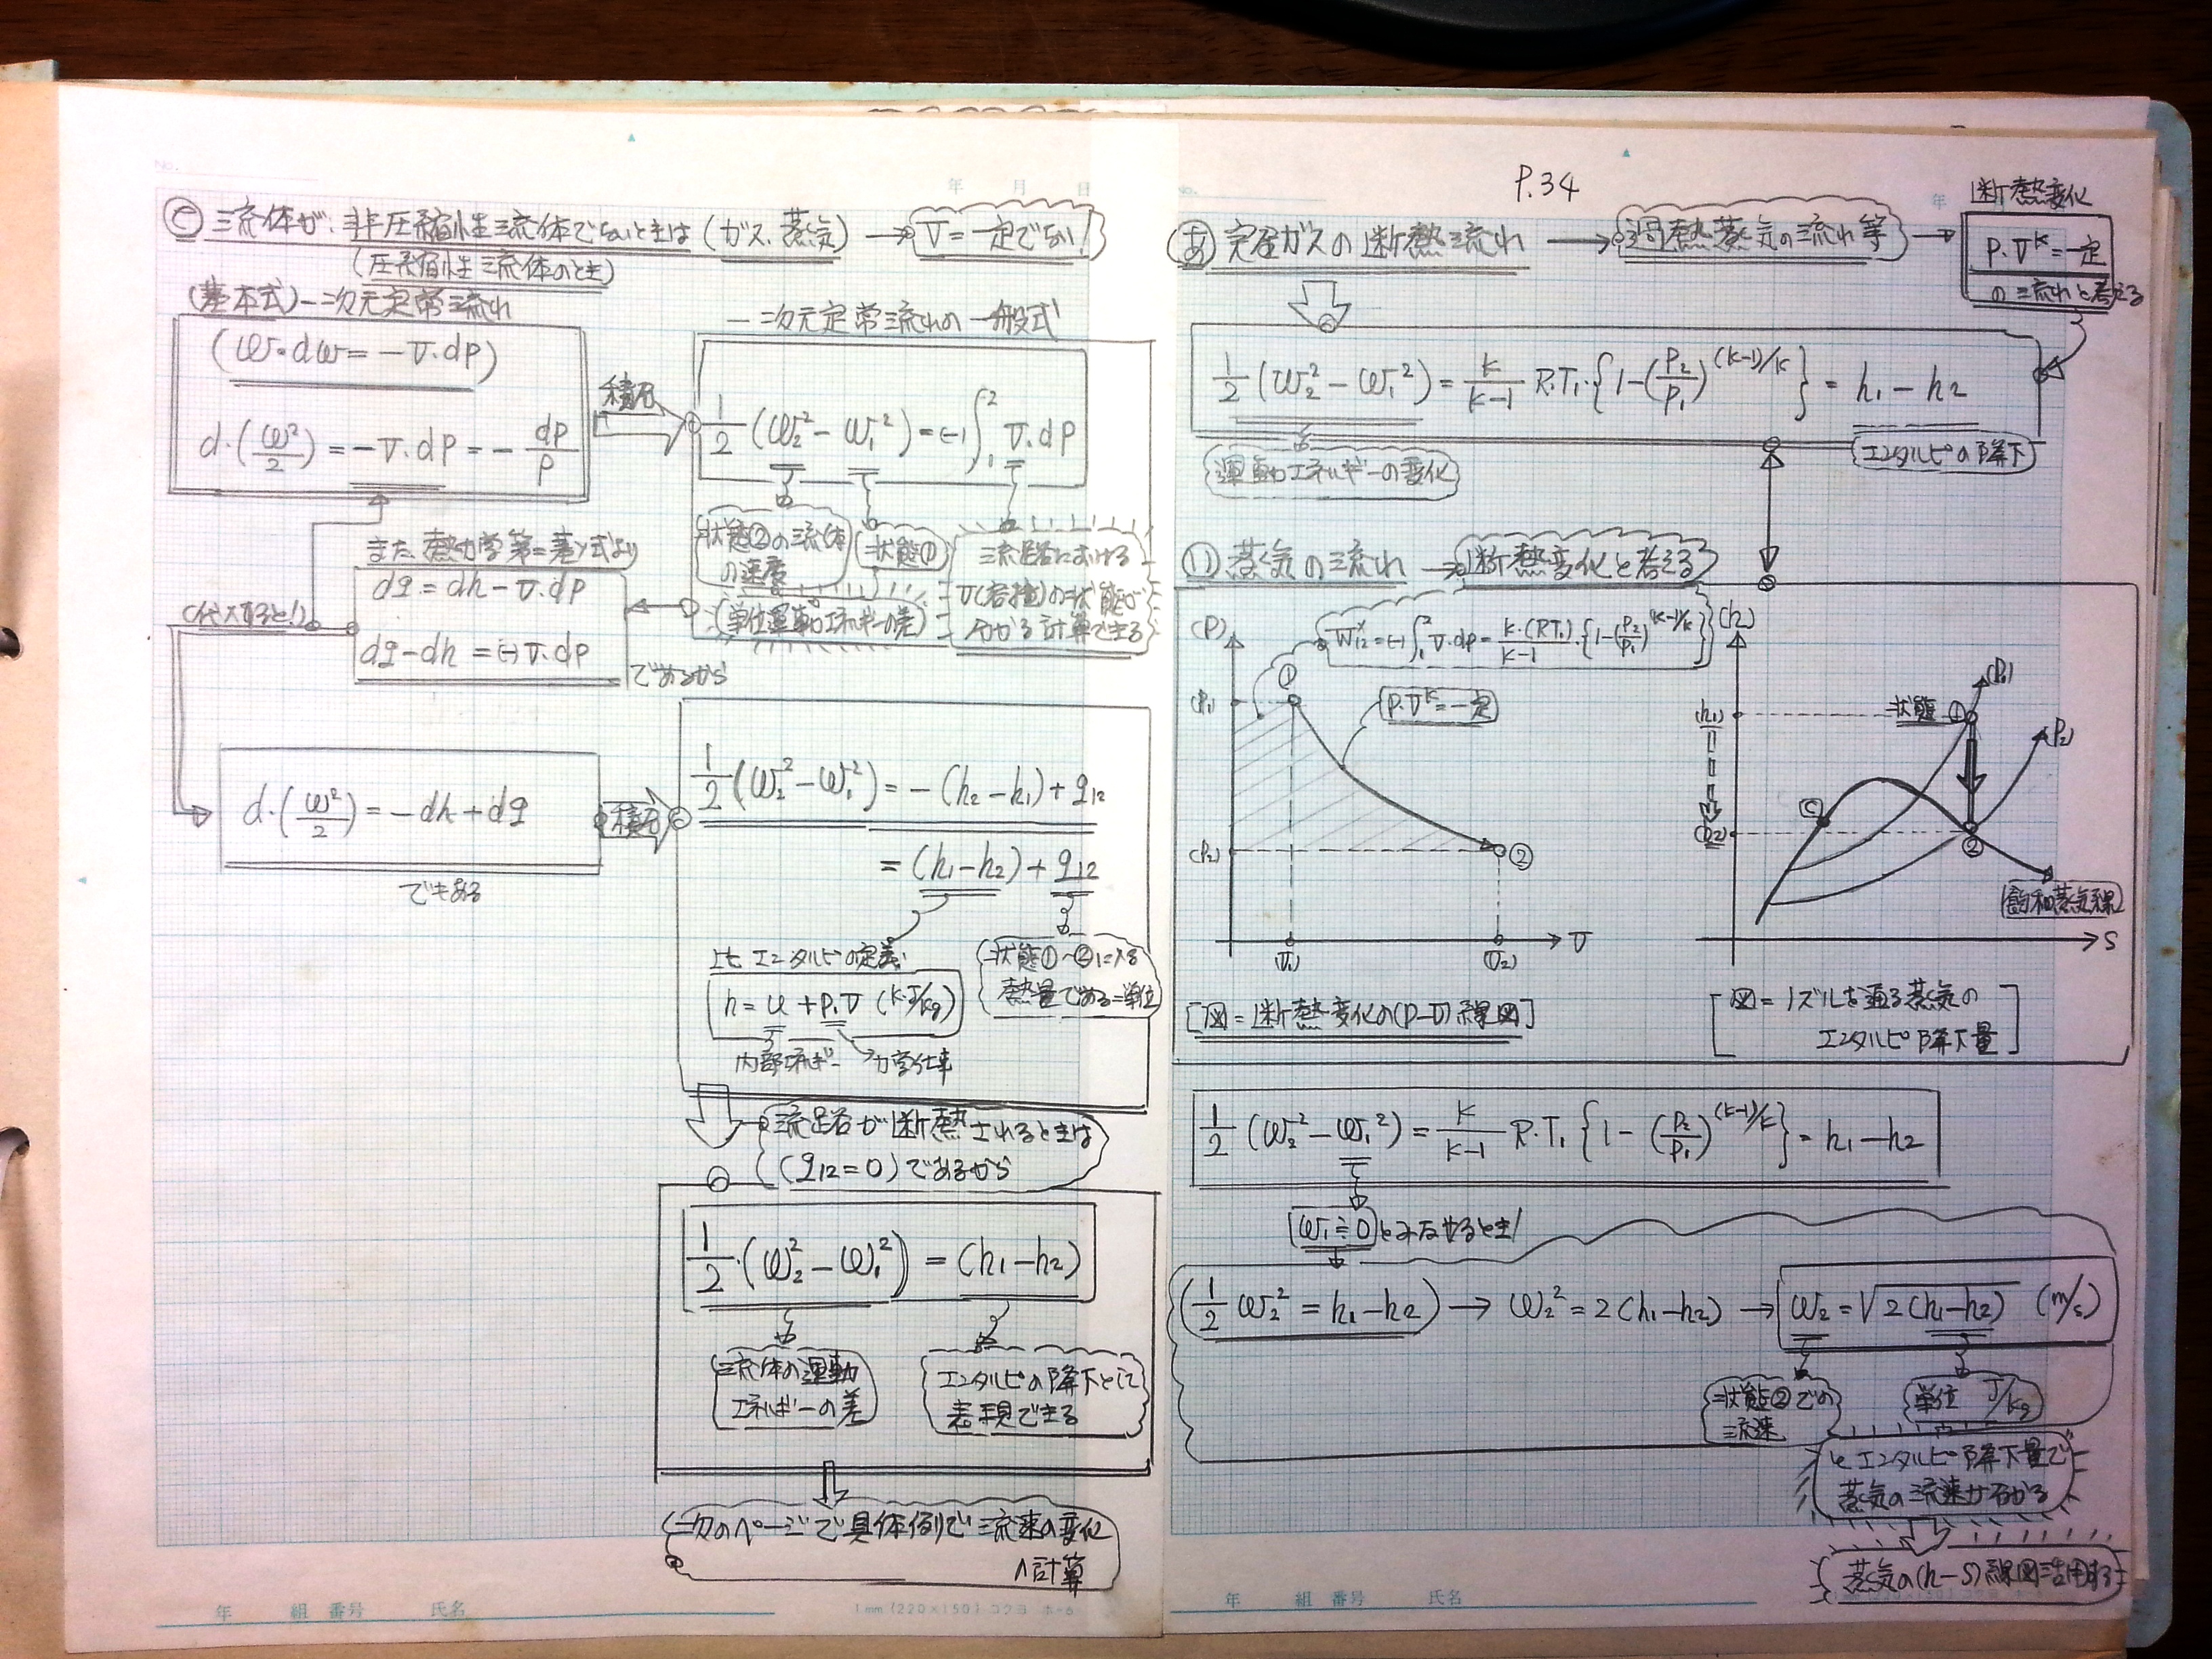 No.
年 月 日
Ⓒ 流体が、非圧縮性流体でないときは (ガス、蒸気) → V=一定でない!
(圧縮性流体のとき)
(基本式) 一次元定常流れ
(w・dw=-V・dp)
d・(w²/2)=-V・dp=-dp/ρ
積分
一次元定常流れの一般式
1/2 (w₂²-w₁²)=(-)∫₁² V・dp
状態②の流体の速度
状態①
流路における
V(容積)の状態が
分かる計算できる
(単位運動エネルギーの差)
また、熱力学第二基礎式より
dq=dh-V・dp
dq-dh=(-)V・dp
であるから
(代入すると!)
d・(w²/2)=-dh+dq
でもある
積分
1/2(w₂²-w₁²)=-(h₂-h₁)+q₁₂
=(h₁-h₂)+q₁₂
比エンタルピの定義
h=u+p.V (kJ/kg)
内部エネルギー
状態①~②に入る
熱量である=単位
流路が断熱されるときは
(q₁₂=0)であるから
1/2・(w₂²-w₁²)=(h₁-h₂)
流体の運動
エネルギーの差
エンタルピの降下として
表現できる
次のページで具体例で流速の変化
へ計算
年 組 番号 氏名
1mm(220×150) コクヨ ホ-6
P.34
No.
年
あ 完全ガスの断熱流れ → 過熱蒸気の流れ等 →
断熱変化
P.V^k=一定
の流れと考える
1/2 (w₂²-w₁²)=k/(k-1) R・T₁・{1-(P₂/P₁)^(k-1)/k}=h₁-h₂
運動エネルギーの変化
エンタルピの降下
(1) 蒸気の流れ → 断熱変化と考える
(P)
W₁₂=(-)∫₁² V・dp=k・(RT₁)/(k-1)・{1-(P₂/P₁)^(k-1)/k}
(P₁)
①
P.V^k=一定
(P₂)
②
(V₁)
(V₂)
V
[図=断熱変化の(P-V)線図]
(h)
(h₁)
(h₂)
状態①
(P₁)
(P₂)
Ⓒ
②
飽和蒸気線
S
[図=ノズルを通る蒸気の
エンタルピ降下量]
1/2 (w₂²-w₁²)=k/(k-1) R・T₁{1-(P₂/P₁)^(k-1)/k}=h₁-h₂
w₁≒0とみなせるとき!
(1/2 w₂²=h₁-h₂) → w₂²=2(h₁-h₂) → w₂=√2(h₁-h₂) (m/s)
状態②での
流速
単位 J/kg
エンタルピ降下量で
蒸気の流速が分かる
蒸気の(h-S)線図活用する
年 組 番号 氏名